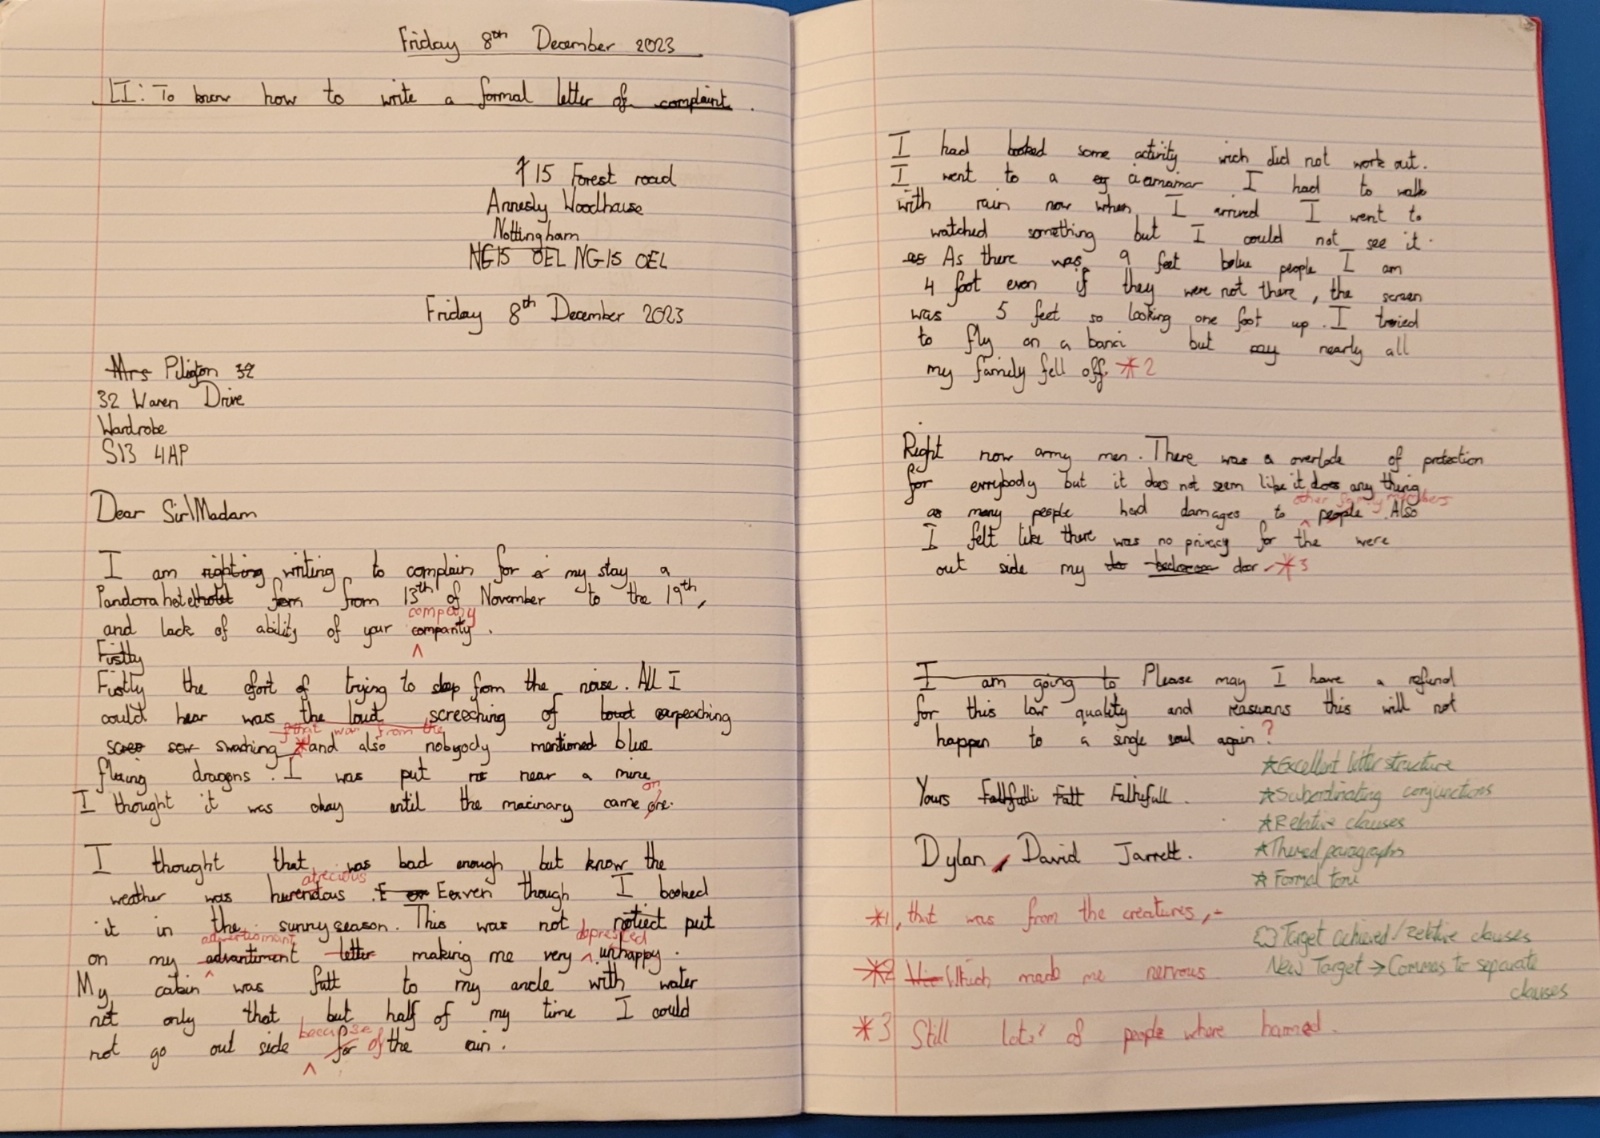 Friday 8th December 2023
LI: To know how to write a formal letter of complaint.
15 Forest road
Annesly Woodhause
Nottingham
NG15 0EL NG15 0EL
Friday 8th December 2023
Mrs Piligton 32
32 Waren Drive
Wardrobe
S13 4AP
Dear Sir\Madam
I am righting writing to complain for my stay a
Pandora hotel hotel from from 13th of November to the 19th,
company
and lack of ability of your companty.
Firstly
Fistly the efort of trying to slep from the noise. All I
could hear was the loud screeching of loud earpeaching
that was from the
swoching *and also nobyody mentioned blue
flaing dragons. I was put near a mine
on
I thought it was okay until the macinary came one.
I thought that was bad enough but know the
atrecious
weather was hurendous. Eaven though I booked
it in the sunny season. This was not notiect put
advertismant depressed
on my advantiment letter making me very unhappy.
My catin was futt to my ancle with water
not only that but half of my time I could
because of
not go out side for the rain.
I had booked some activity wich did not work out.
I went to a I had to walk
with rain now when I arrived I went to
watched something but I could not see it.
as As there was 9 feet bolue people I am
4 foot even if they were not there, the screen
was 5 feet so looking one foot up. I troied
to fly on a banci but nearly all
my family fell off. *2
Right now army men. There was a overlode of protection
for errybody but it does not seem like it does any thing
other family members
as many people had damages to people. Also
I felt like there was no privacy for the were
out side my bedroom door. *3
I am going to Please may I have a refund
for this low quality and reasuans this will not
happen to a single soul again?
*Excellent letter structure
Yours Faithfull.
*Subordinating conjunctions
*Relative clauses
Dylan, David Jarrett.
*Themed paragraphs
*Formal tone
*1, that was from the creatures,
Target achieved/relative clauses
*2 Which made me nervous
New Target → Commas to separate
clauses
*3 Still lots of people where harmed.